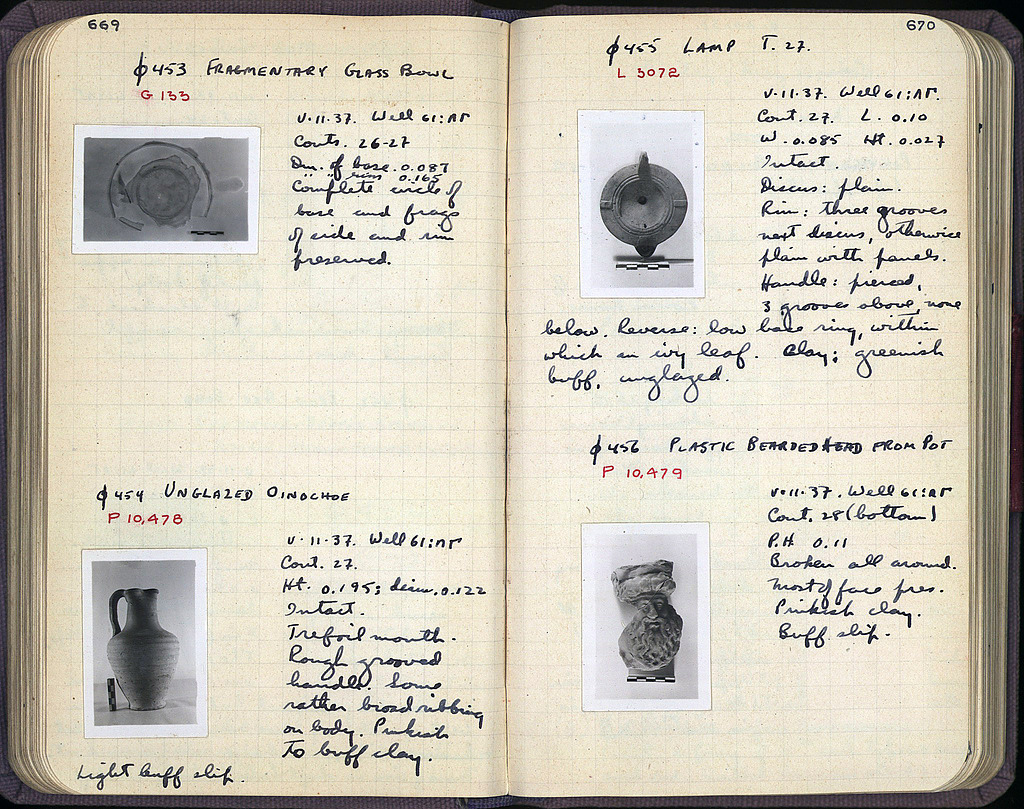 669
φ453 FRAGMENTARY GLASS BOWL
G 133
V·11·37. Well 61:ΛΓ
Conts. 26-27
Dm. of base. 0.087
" " rim 0.165
Complete circle of
base and frags
of side and rim
preserved.
φ454 UNGLAZED OINOCHOE
P 10,478
V·11·37. Well 61:ΛΓ
Cont. 27.
Ht. 0.195; diam. 0.122
Intact.
Trefoil mouth.
Rough grooved
handle. Some
rather broad ribbing
on body. Pinkish
to buff clay.
Light buff slip.
670
φ455 LAMP T. 27.
L 3072
V·11·37. Well 61:ΛΓ.
Cont. 27. L. 0.10
W. 0.085 Ht. 0.027
Intact.
Discus: plain.
Rim: three grooves
next discus, otherwise
plain with panels.
Handle: pierced,
3 grooves above, none
below. Reverse: low base ring, within
which an ivy leaf. Clay: greenish
buff, unglazed.
φ456 PLASTIC BEARDED HEAD FROM POT
P 10,479
V·11·37. Well 61:ΛΓ
Cont. 28 (bottom)
P.H. 0.11
Broken all around.
Most of face pres.
Pinkish clay.
Buff slip.